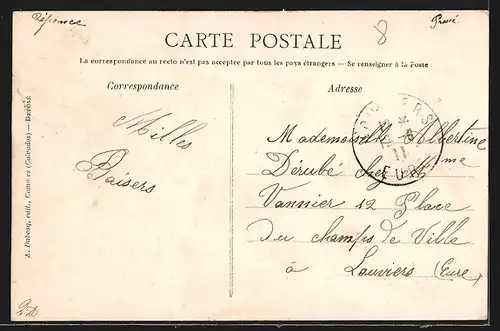 Réponse
8
Pressé
CARTE POSTALE
La correspondance au recto n'est pas acceptée par tous les pays étrangers — Se renseigner à la Poste
Correspondance
Adresse
Milles
Baisers
Mademoiselle Albertine
Dérubé chez Mme
Vannier 12 Place
du champs de Ville
à Louviers (Eure)
A. Dubosq, édit., (Calvados) — DÉPOSÉ
11
EURE